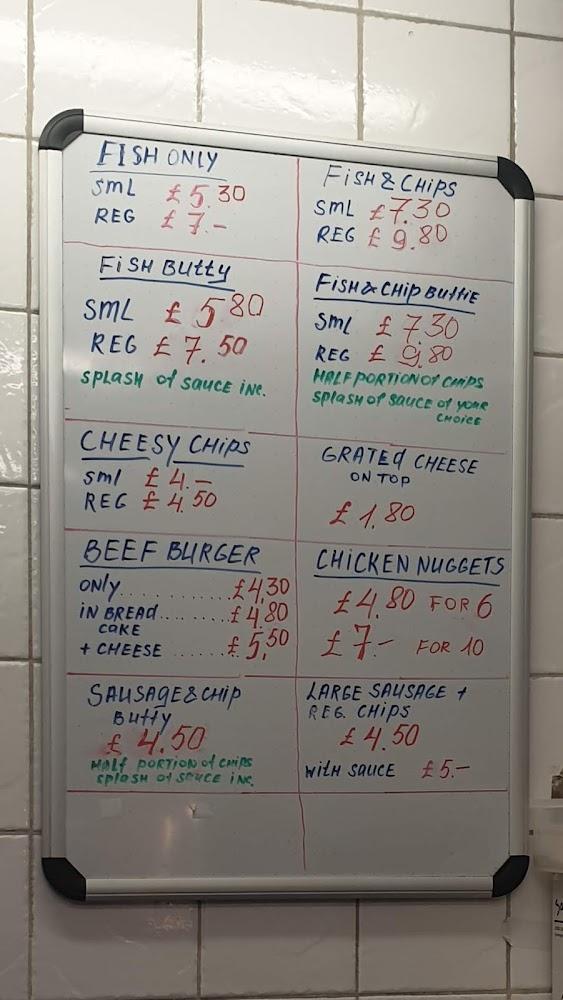 FISH ONLY
SML £5.30
REG £7.-
FISH & CHIPS
SML £7.30
REG £9.80
FISH BUTTY
SML £5.80
REG £7.50
SPLASH of SAUCE INC.
FISH & CHIP BUTTIE
SML £7.30
REG £9.80
HALF PORTION of CHIPS
SPLASH of SAUCE of YOUR
CHOICE
CHEESY CHIPS
SML £4.-
REG £4.50
GRATED CHEESE
ON TOP
£1.80
BEEF BURGER
ONLY..............£4,30
IN BREAD.........£4,80
CAKE
+ CHEESE .......£5,50
CHICKEN NUGGETS
£4.80 FOR 6
£7.- FOR 10
SAUSAGE & CHIP
BUTTY
£4.50
HALF PORTION of CHIPS
SPLASH of SAUCE INC.
LARGE SAUSAGE +
REG. CHIPS
£4.50
WITH SAUCE £5.-